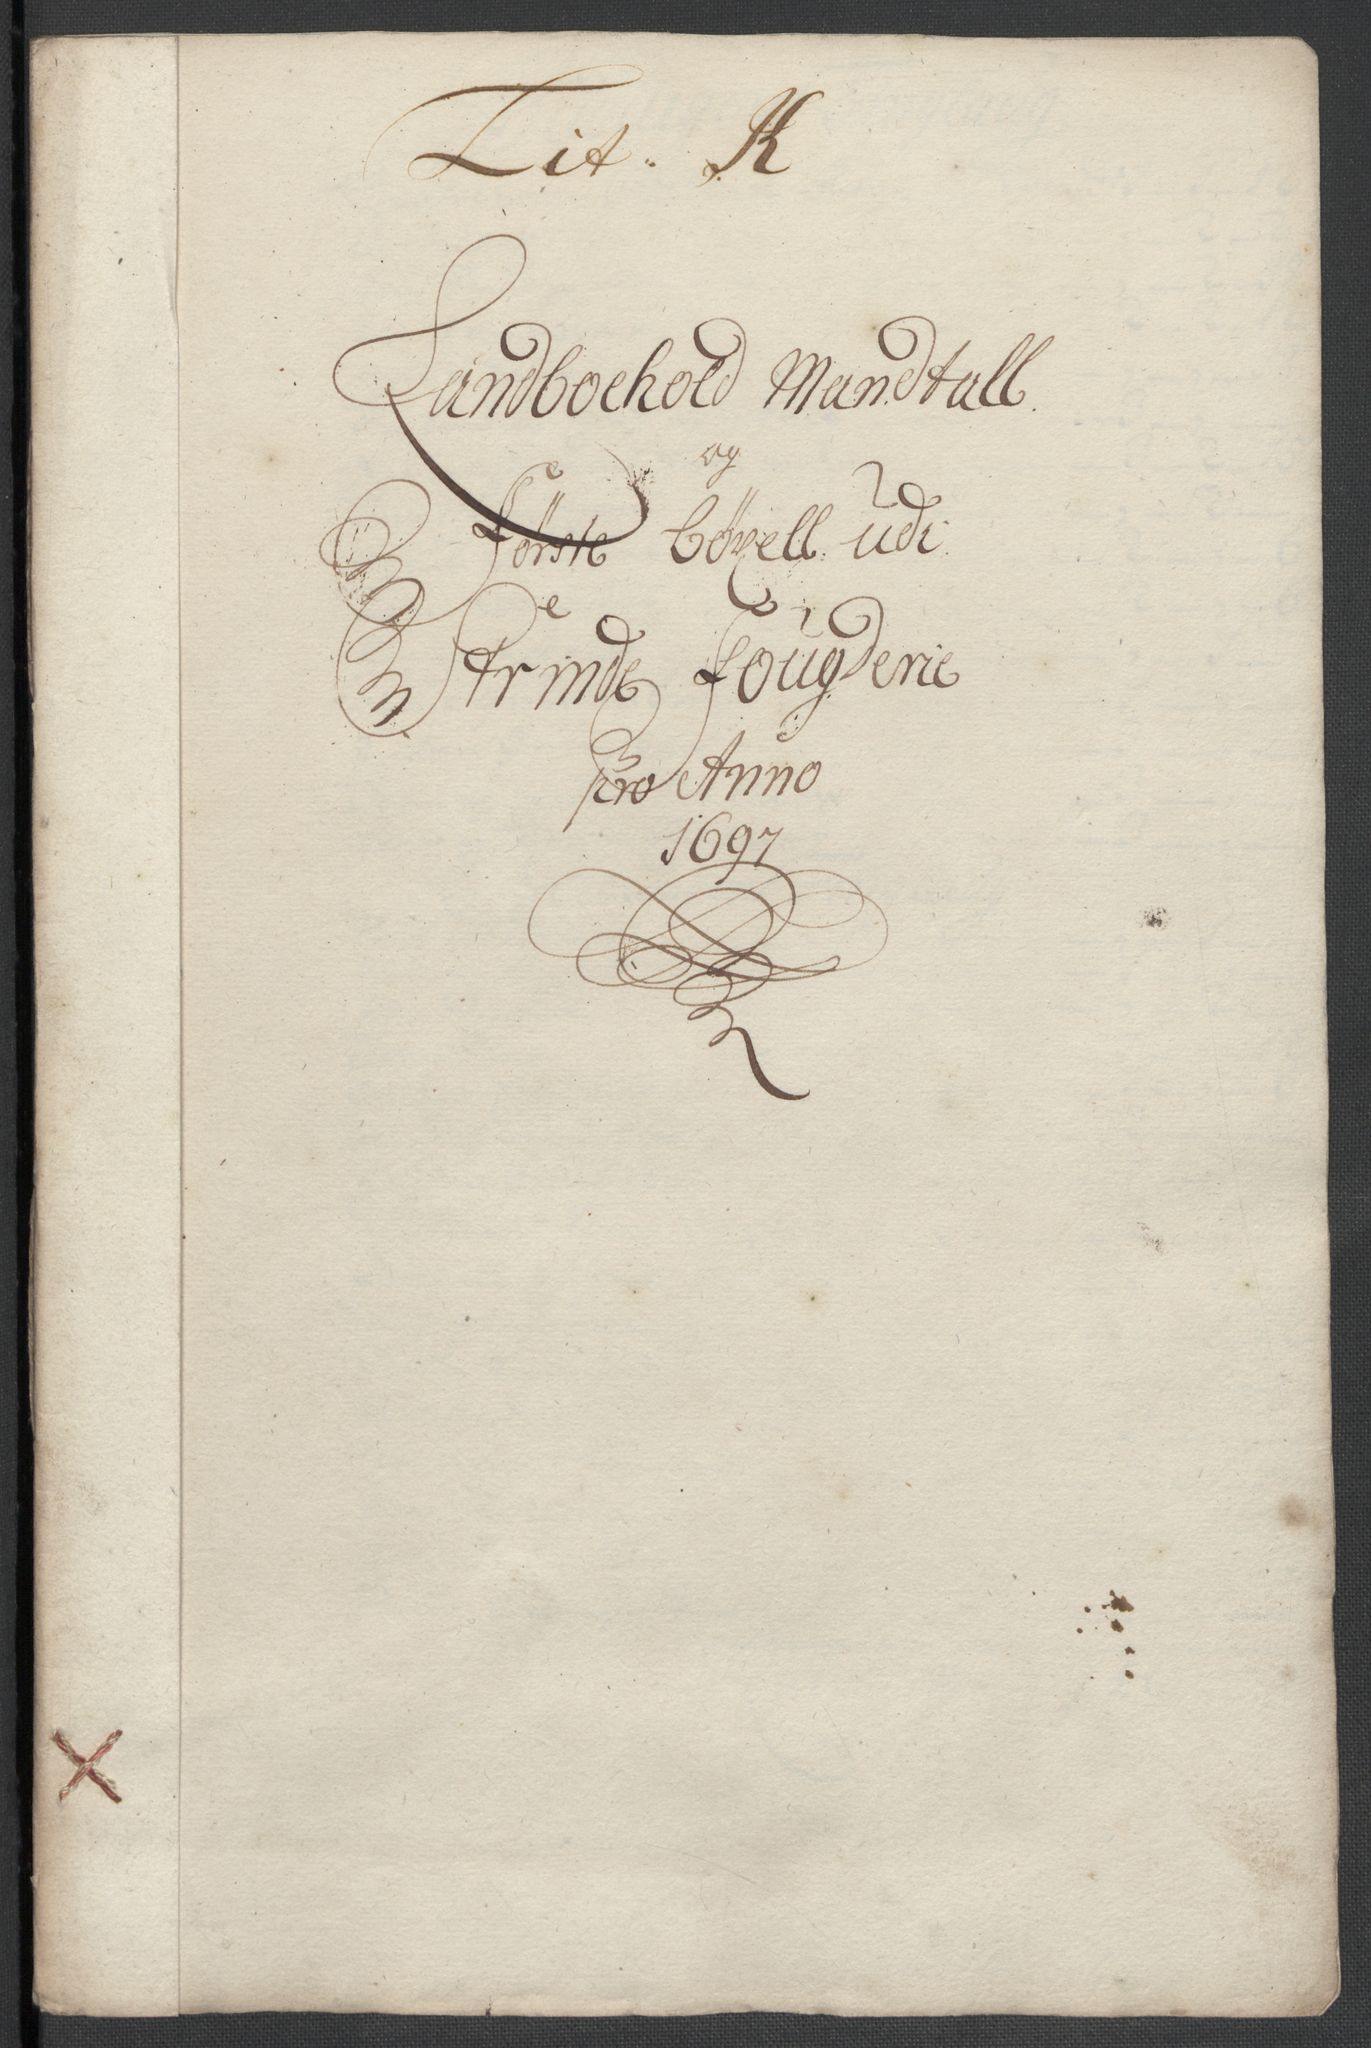 Lit. K
Landbohold Mandtall
og
første böxell udi
Strinde fougderie
pro Anno
1697